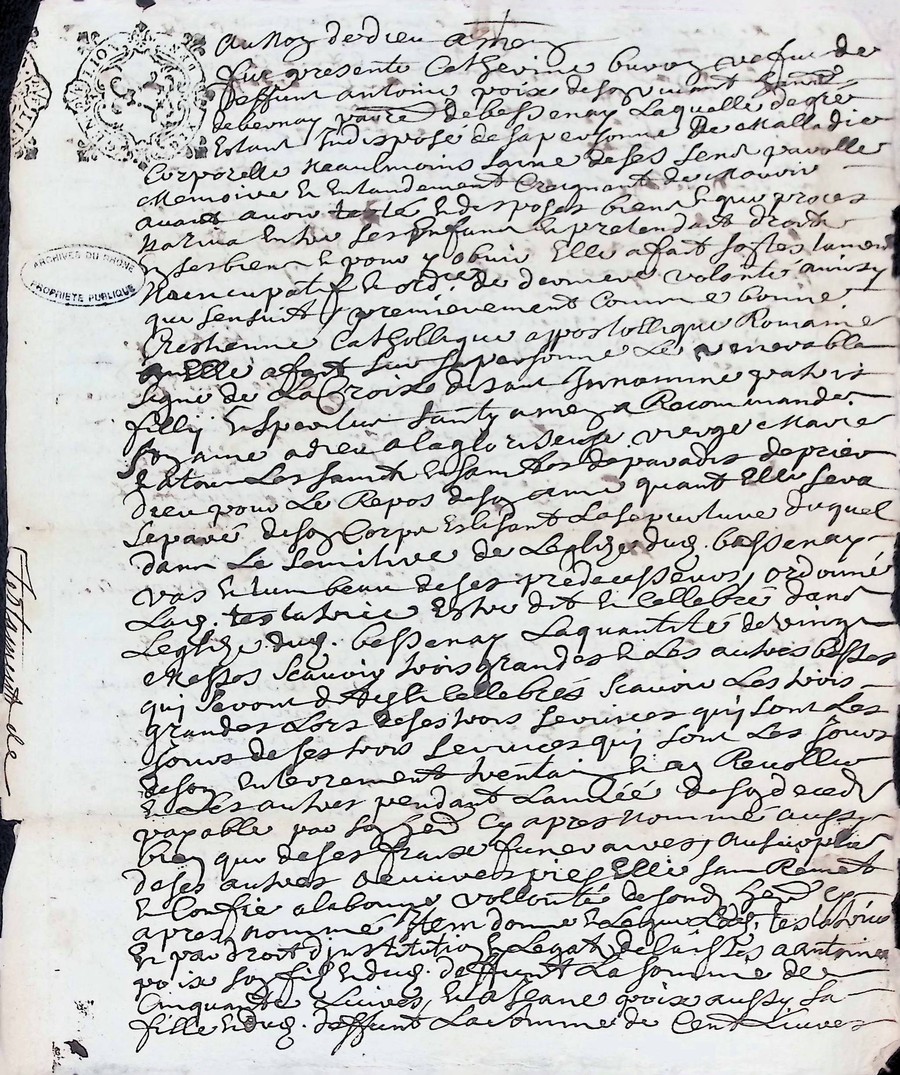 Au Nom de dieu amen
fut presente Catherine buvoy vefue de
deffunt antoine poix de son vivant
de bernay parre de bessenay Laquelle de gré
Estant Indisposé de sa personne de Malladie
Corporelle Neaulmoins saine de ses sens parolle
Memoire Et Entandement Craignant de Mourir
avant avoir testé Et disposer biens Et que proces
Naviva Entre ses Enfans Et pretendant droitz
En ses biens Et pour y obvier Elle a fait son testament
Nuincupatif Et ord.re de derniere volonte ainsy
que sensuit / premierement Comme bonne
Crestienne Catholique appostollique Romaine
Elle a fait sur sa personne Le venerable
signe de La Croix disant In nomine patris
fillij Et speritus santy amen a Recommandé
son ame a dieu a la gloriseuse vierge Marie
Et a tous Les saints Et saintes de paradis de prier
dieu pour Le Repos de son ame quant Elle sera
separé de son Corps Eslisant La sepulture duquel
dans Le semitive de Leglize dud. bessenay
vas Et tumbeau de ses predecesseurs, ordonné
Lad. testatrice Estre dit Et Cellebré dans
Leglize dud. bessenay La quantité de vingt
Messes scauoir trois grandes Et Les autres basses
qui seront Cellebrés scauoir Les trois
grandes Lors de ses trois services quj sont Les
Jours de ses trois services quj sont Les Jours
de son Enterrement trentain Et an Revollu
Et Les autres pendant Lannéé de son deced
payable par son her. Cy apres nommé aussy
bien que de ses fraix funeraires, au surplus
de ses autres oeuvres pies Elle san Remet
Et Confie a la bonne vollonté de sond. her. Cy
apres nommé Item donne Et Legue Lad. testatrice
Et par droit d'institution Et Legat delaisses a antoine
poix son filz Et dud. deffunt La somme de
Cinquante Livres, Et a Jeane poix aussy sa
fille Et dud. deffunt La somme de Cent Livres
Testament de
ARCHIVES DU RHONE
PROPRIETE PUBLIQUE